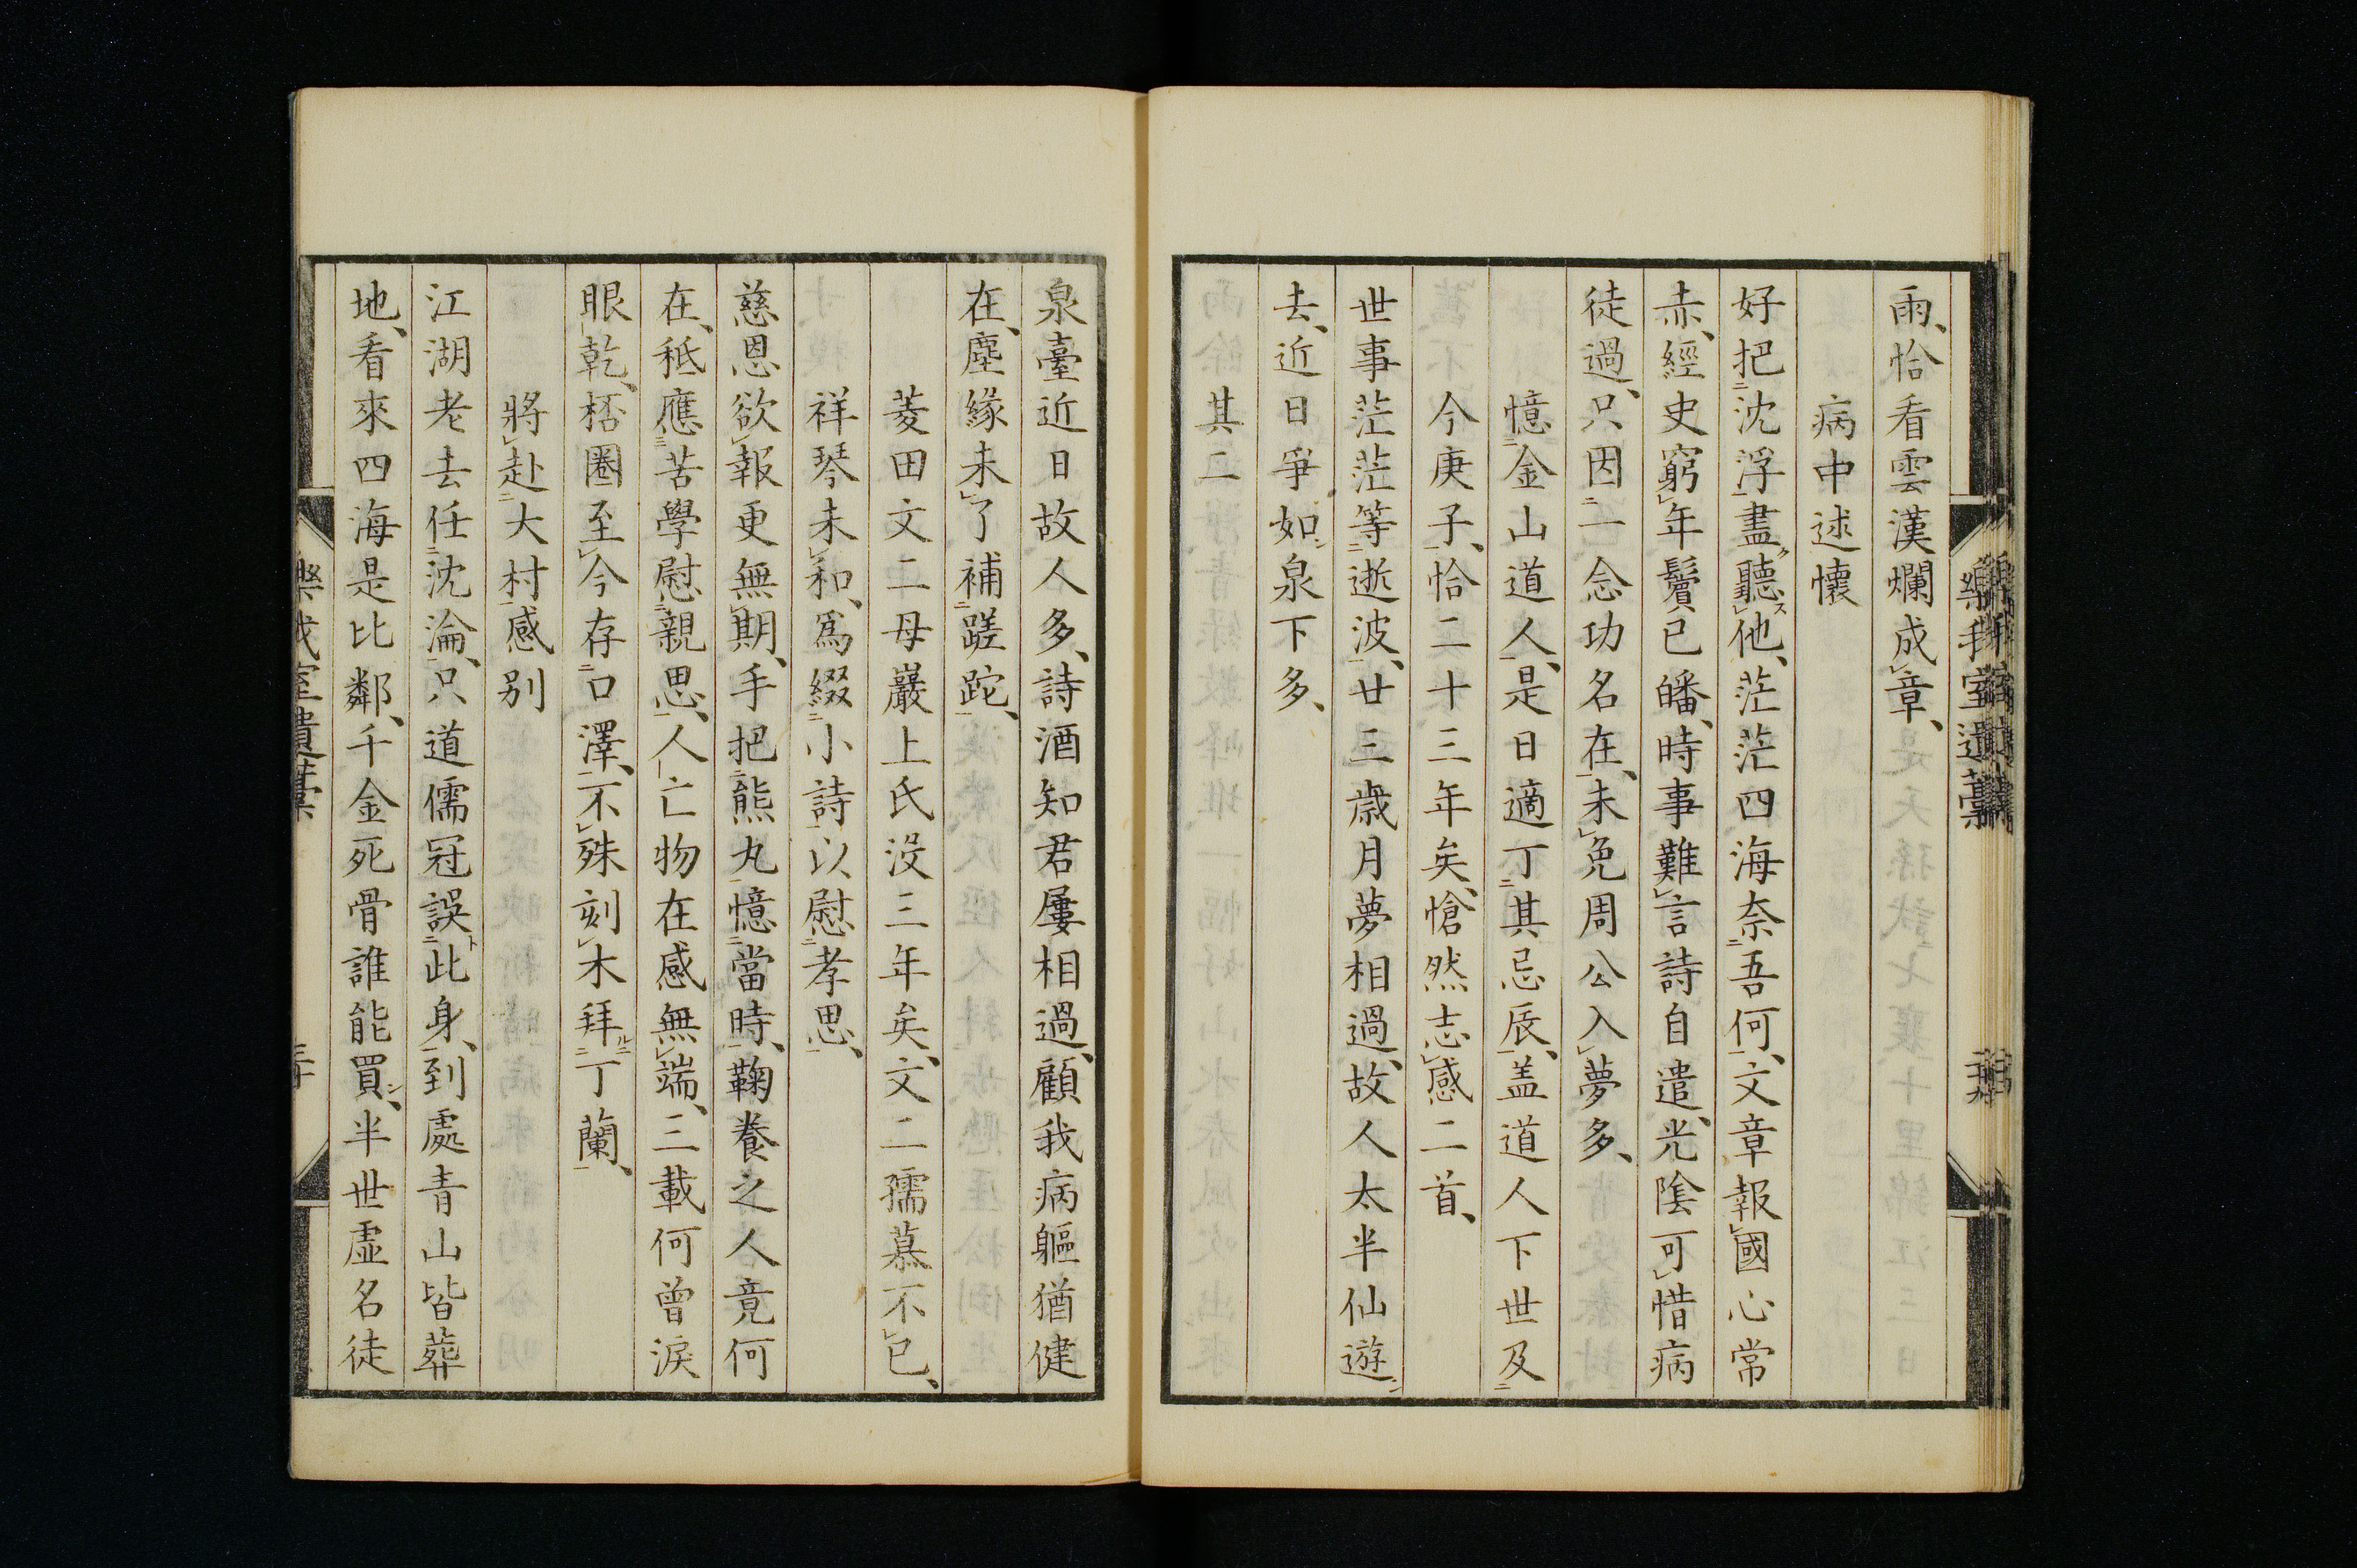 雨、恰看雲漢爛成章、
病中述懷
好把沈浮盡聽他、茫茫四海奈吾何、文章報國心常
赤、經史窮年鬢已皤、時事難言詩自遣、光陰可惜病
徒過、只因一念功名在、未免周公入夢多、
憶金山道人、是日適丁其忌辰、盖道人下世及
今庚子、恰二十三年矣、愴然志感二首、
世事茫茫等逝波、廿三歲月夢相過、故人太半仙遊
去、近日爭如泉下多、
其二
泉臺近日故人多、詩酒知君屢相過、顧我病軀猶健
在、塵緣未了補蹉跎、
菱田文二母巖上氏沒三年矣、文二孺慕不已、
祥琴未和、爲綴小詩以慰孝思、
慈恩欲報更無期、手把熊丸憶當時、鞠養之人竟何
在、秪應苦學慰親思、人亡物在感無端、三載何曾淚
眼乾、桮圈至今存口澤、不殊刻木拜丁蘭、
將赴大村感別
江湖老去任沈淪、只道儒冠誤此身、到處青山皆葬
地、看來四海是比鄰、千金死骨誰能買、半世虛名徒